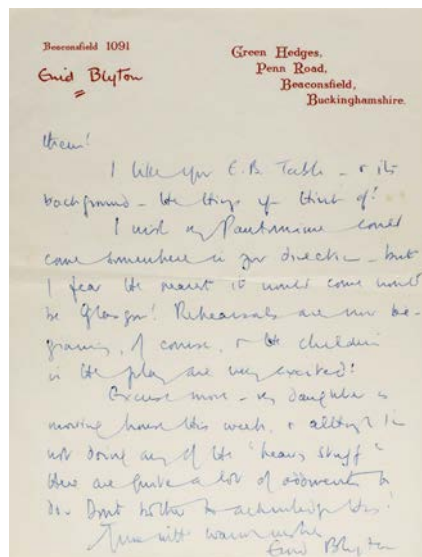 Beaconsfield 1091
Enid Blyton
Green Hedges,
Penn Road,
Beaconsfield,
Buckinghamshire.
them!
I like your E.B. Table - & its
background - the things you think of!
I wish my Pantomime could
come somewhere in your direction - but
I fear the nearest it would come would
be Glasgow! Rehearsals are now be-
ginning, of course, & the children
in the play are very excited!
Excuse more - my daughter is
moving house this week, & although I'm
not doing any of the "heavy stuff"
there are quite a lot of oddments to
do. Don't bother to acknowledge this!
with warm wishes
Enid Blyton